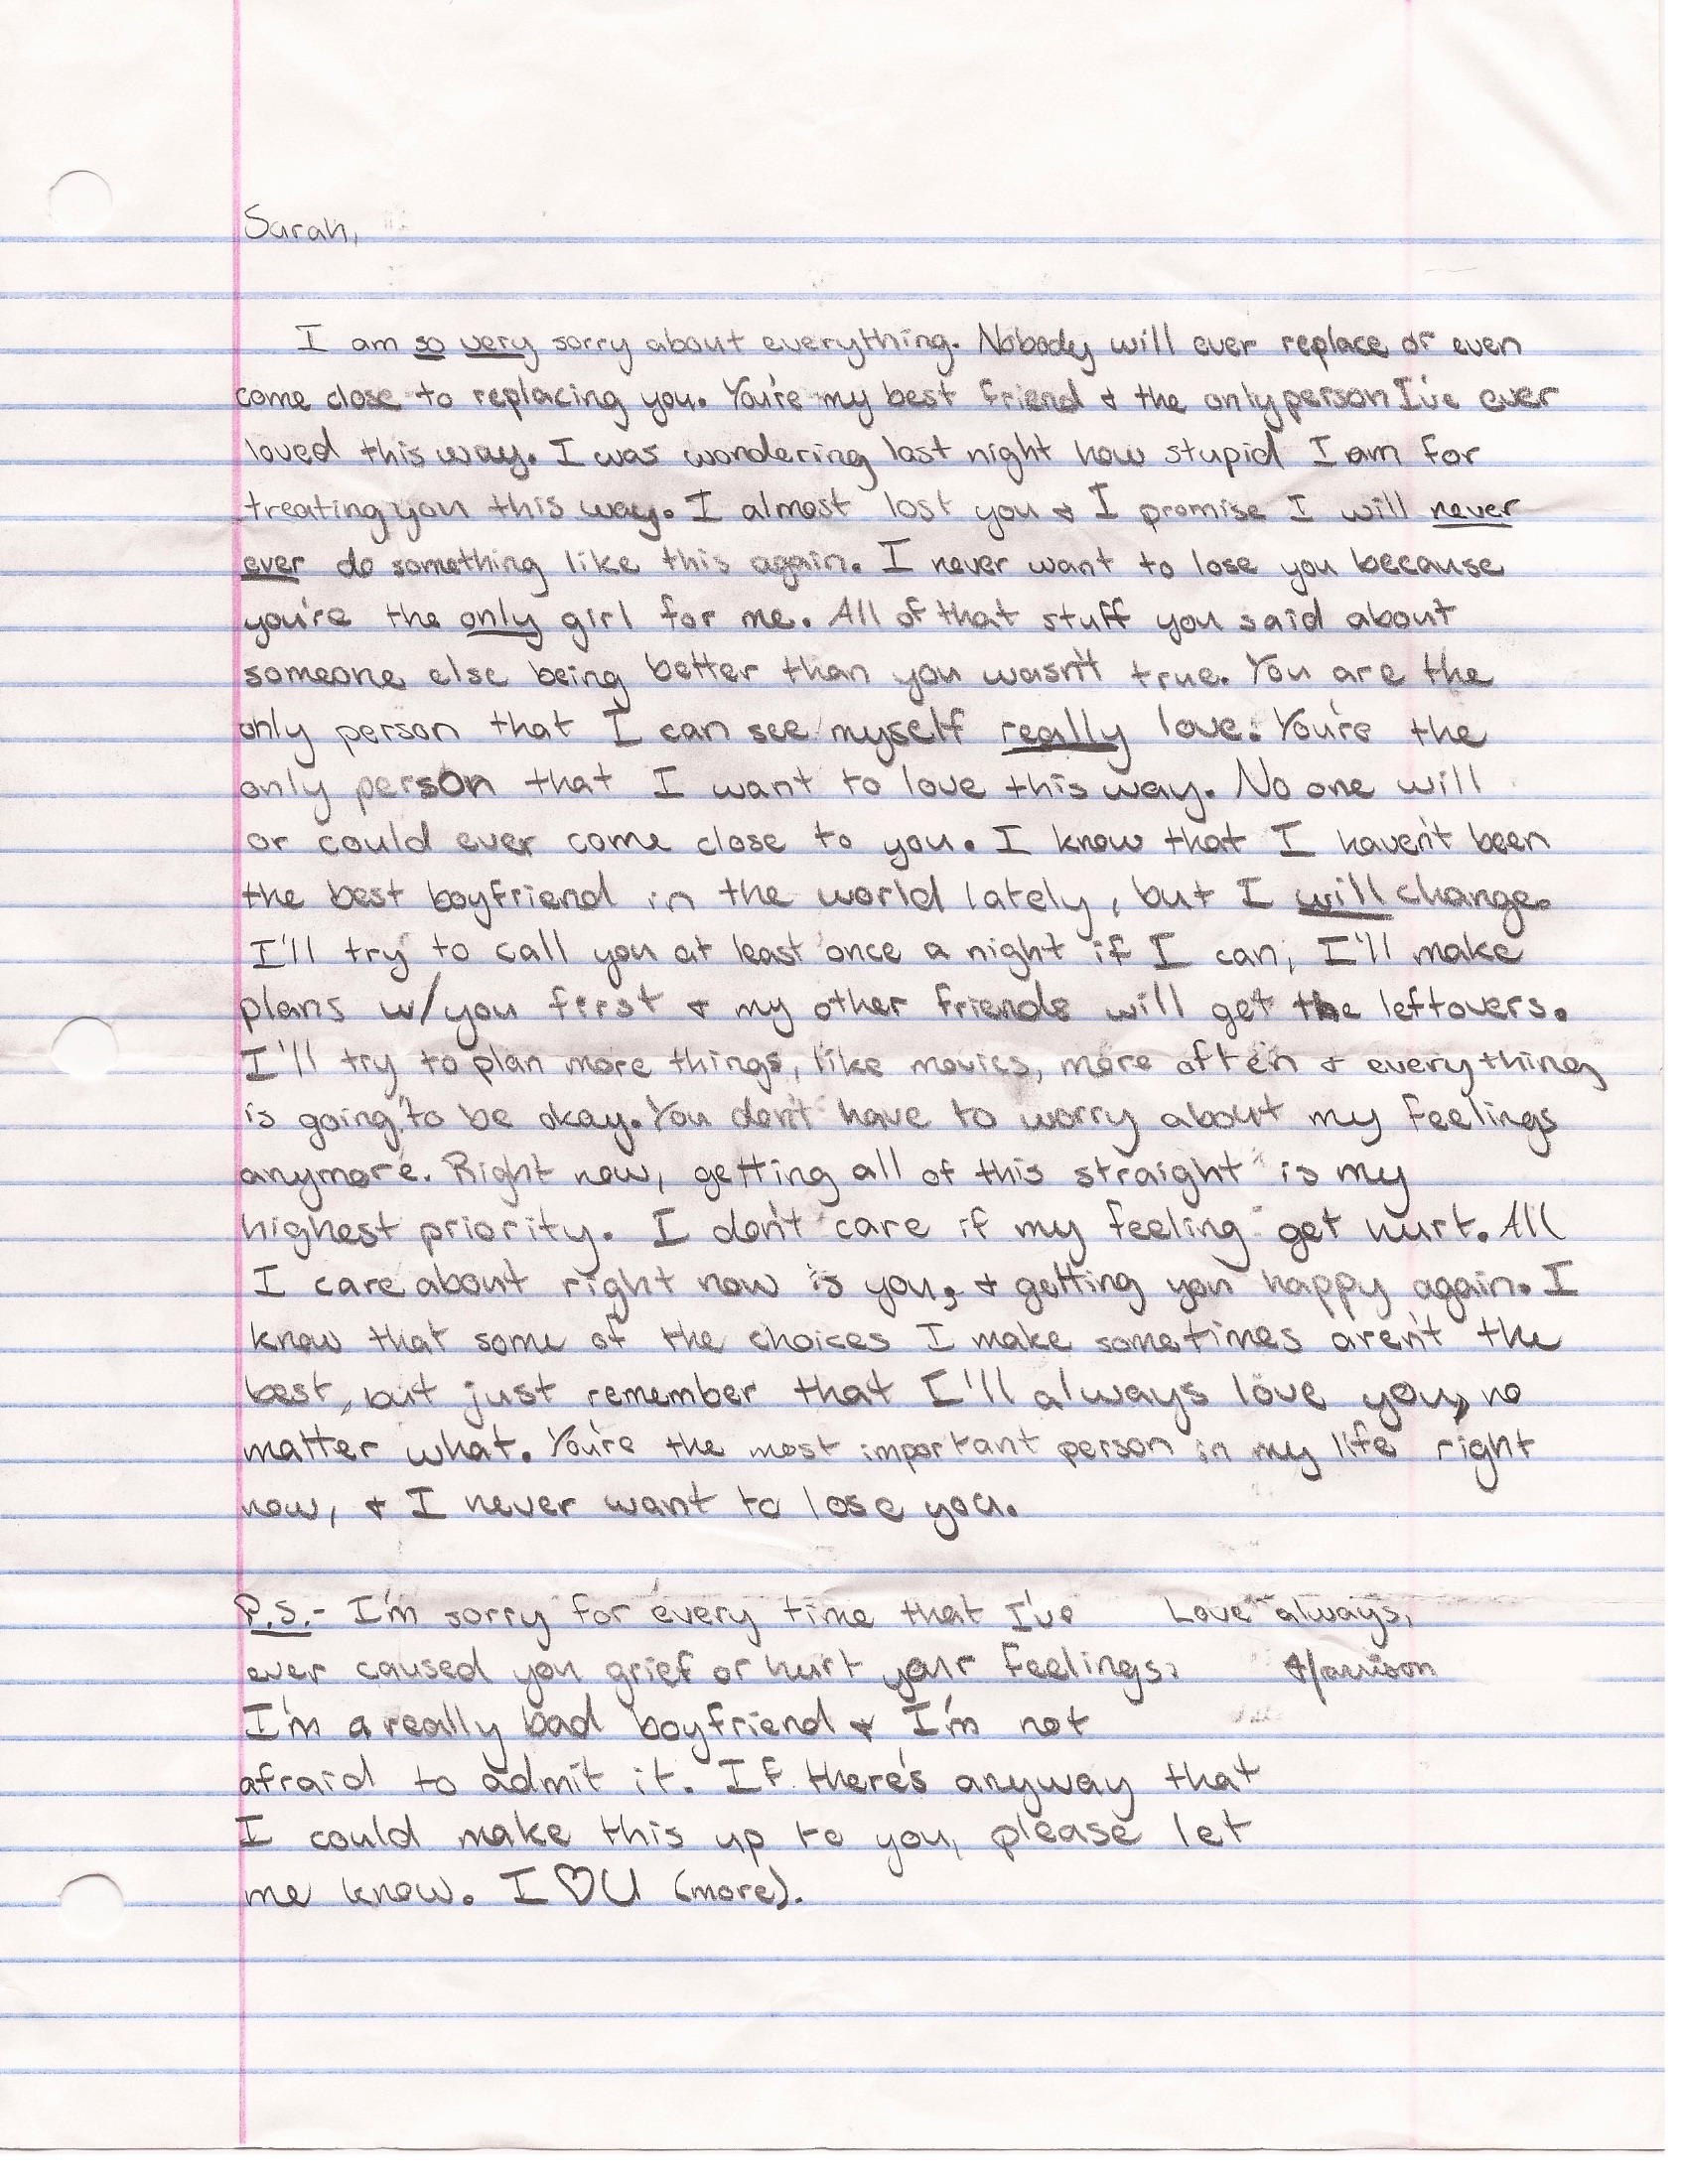 Sarah,
I am so very sorry about everything. Nobody will ever replace or even
come close to replacing you. You're my best friend & the only person I've ever
loved this way. I was wondering last night how stupid I am for
treating you this way. I almost lost you & I promise I will never
ever do something like this again. I never want to lose you because
you're the only girl for me. All of that stuff you said about
someone else being better than you wasn't true. You are the
only person that I can see myself really love. You're the
only person that I want to love this way. No one will
or could ever come close to you. I know that I haven't been
the best boyfriend in the world lately, but I will change.
I'll try to call you at least once a night if I can, I'll make
plans w/ you first & my other friends will get the leftovers.
I'll try to plan more things, like movies, more often & everything
is going to be okay. You don't have to worry about my feelings
anymore. Right now, getting all of this straight is my
highest priority. I don't care if my feeling get hurt. All
I care about right now is you, & getting you happy again. I
know that some of the choices I make sometimes aren't the
best, but just remember that I'll always love you, no
matter what. You're the most important person in my life right
now, & I never want to lose you.
P.S.- I'm sorry for every time that I've
ever caused you grief or hurt your feelings.
I'm a really bad boyfriend & I'm not
afraid to admit it. If there's anyway that
I could make this up to you, please let
me know. I ♡ U (more).
Love always,
Harrison